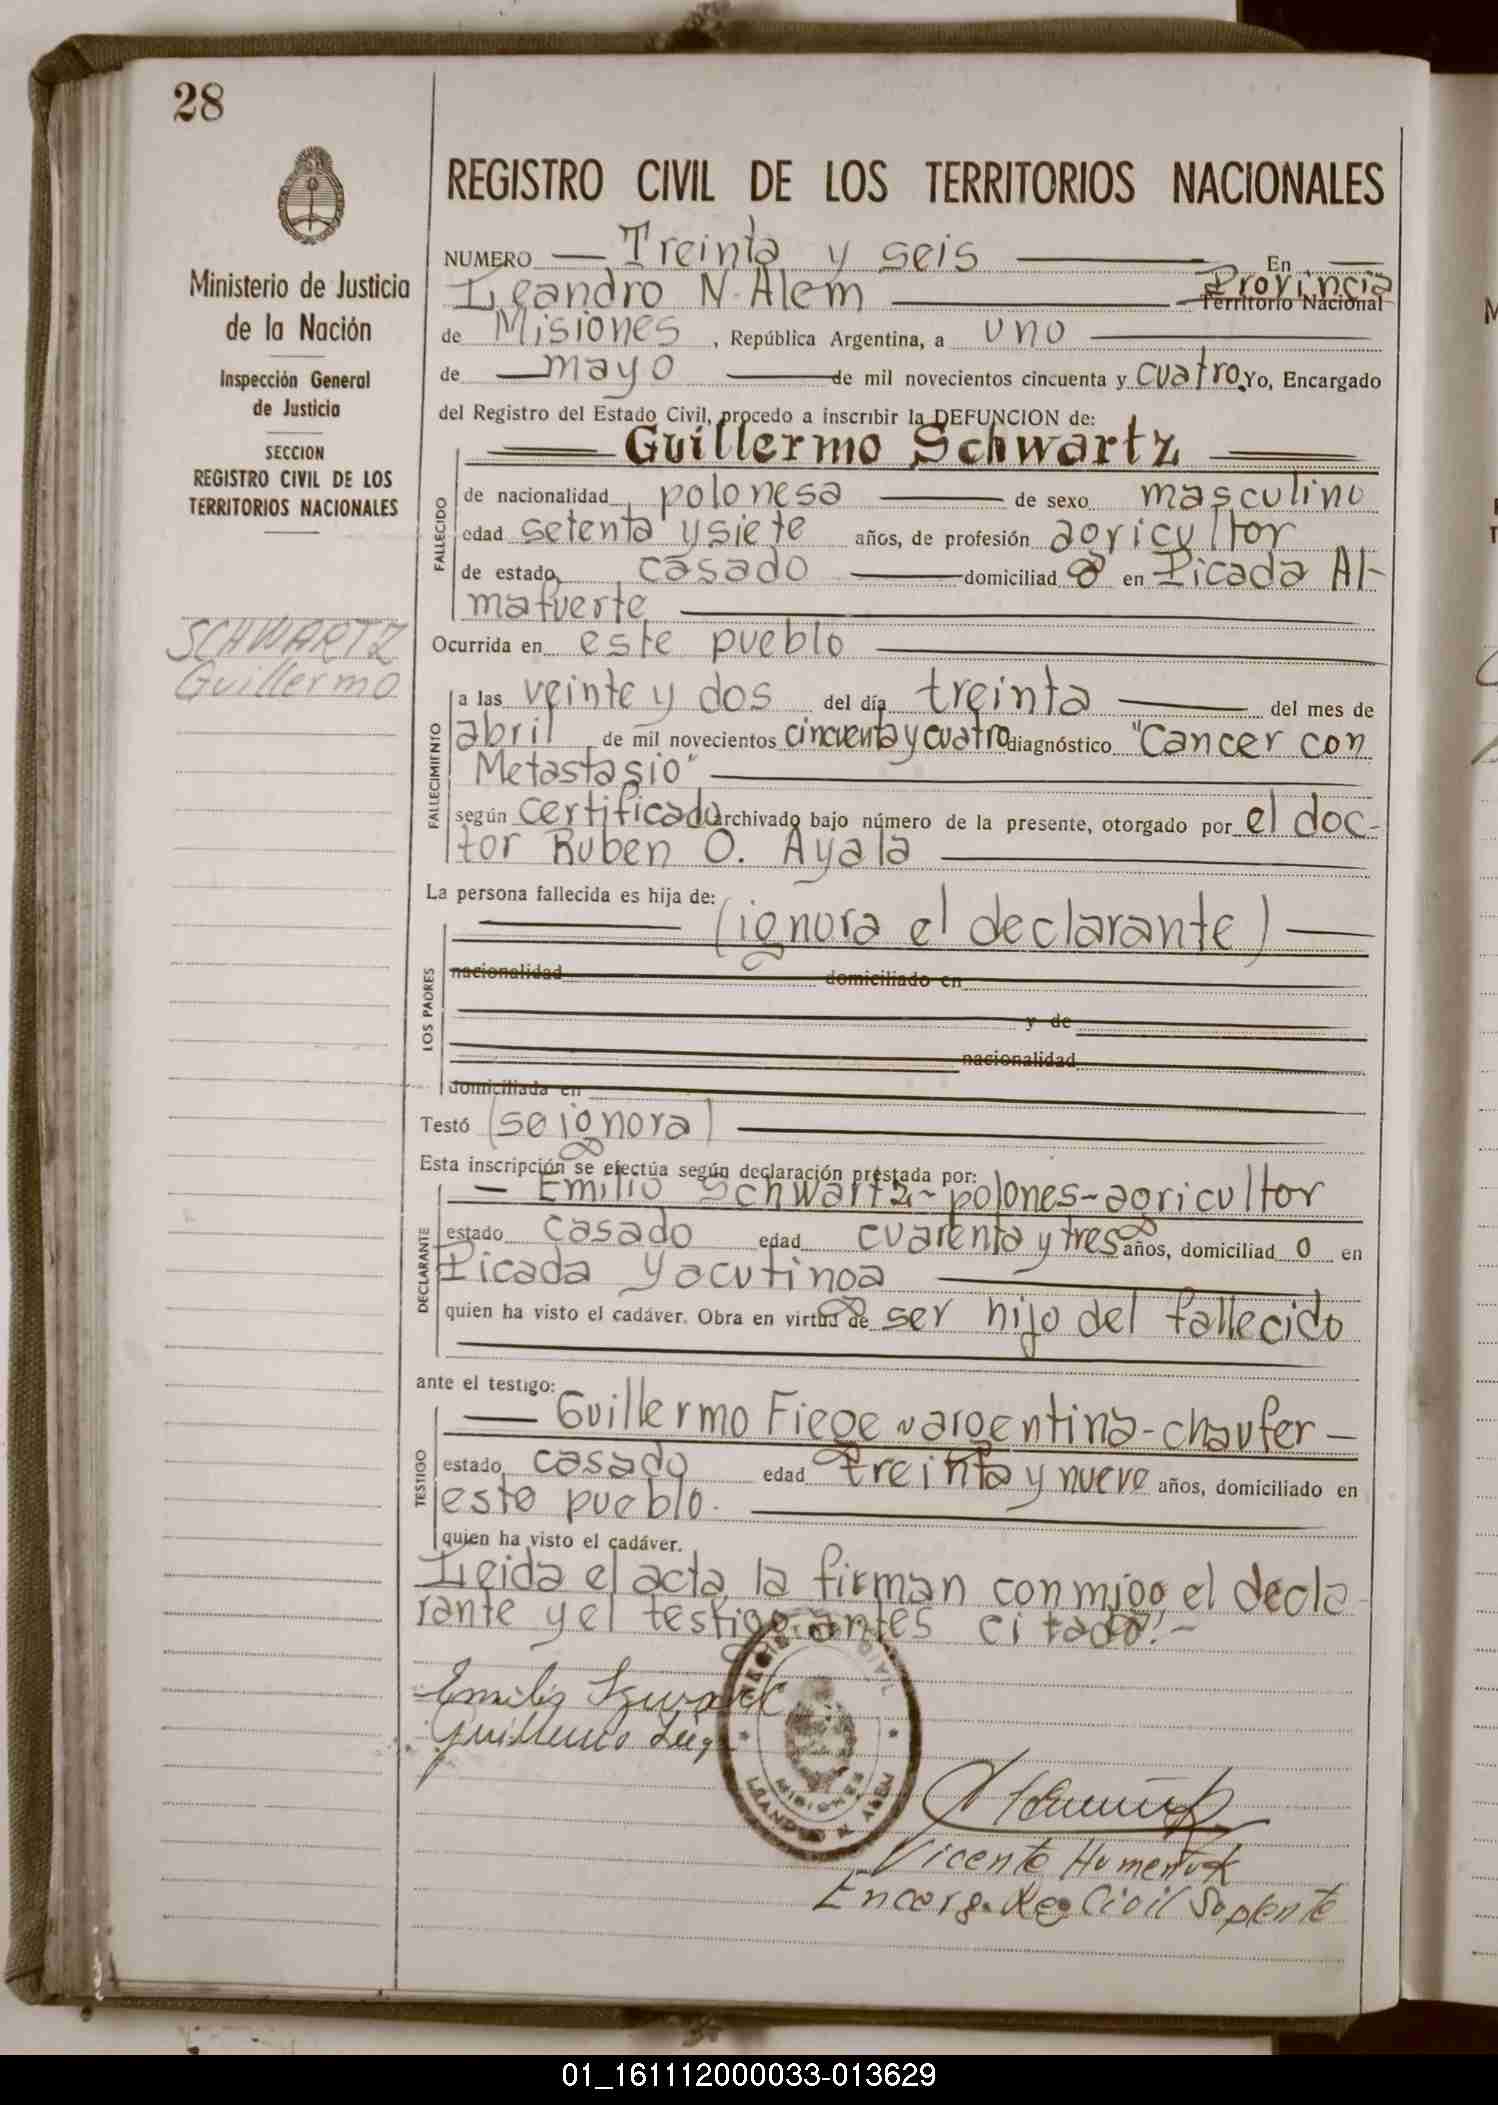 28
REGISTRO CIVIL DE LOS TERRITORIOS NACIONALES
Ministerio de Justicia
de la Nación
Inspección General
de Justicia
SECCION
REGISTRO CIVIL DE LOS
TERRITORIOS NACIONALES
SCHWARTZ
Guillermo
NUMERO Treinta y seis En
Leandro N. Alem Provincia Territorio Nacional
de Misiones, República Argentina, a uno
de mayo de mil novecientos cincuenta y cuatro. Yo, Encargado
del Registro del Estado Civil, procedo a inscribir la DEFUNCION de:
Guillermo Schwartz
FALLECIDO
de nacionalidad polonesa de sexo masculino
edad setenta y siete años, de profesión agricultor
de estado casado domiciliad o en Picada Al-
mafuerte
Ocurrida en este pueblo
FALLECIMIENTO
a las veinte y dos del día treinta del mes de
abril de mil novecientos cincuenta y cuatro diagnóstico "Cancer con
Metastasio"
según certificado archivado bajo número de la presente, otorgado por el doc-
tor Ruben O. Ayala
La persona fallecida es hija de:
(ignora el declarante)
LOS PADRES
nacionalidad domiciliado en
y de
nacionalidad
domiciliada en
Testó (se ignora)
Esta inscripción se efectúa según declaración prestada por:
DECLARANTE
Emilio Schwartz - polones - agricultor
estado casado edad cuarenta y tres años, domiciliad o en
Picada Yacutinga
quien ha visto el cadáver. Obra en virtud de ser hijo del fallecido
ante el testigo:
TESTIGO
Guillermo Fiege - argentina - chaufer -
estado casado edad treinta y nueve años, domiciliado en
este pueblo.
quien ha visto el cadáver.
Leida el acta la firman conmigo el decla-
rante y el testigo antes citado! -
Emilio
Guillermo
MISIONES
LEANDRO N. ALEM
Vicente Humeniuk
Encarg. Reg Civil Suplente
01_161112000033-013629